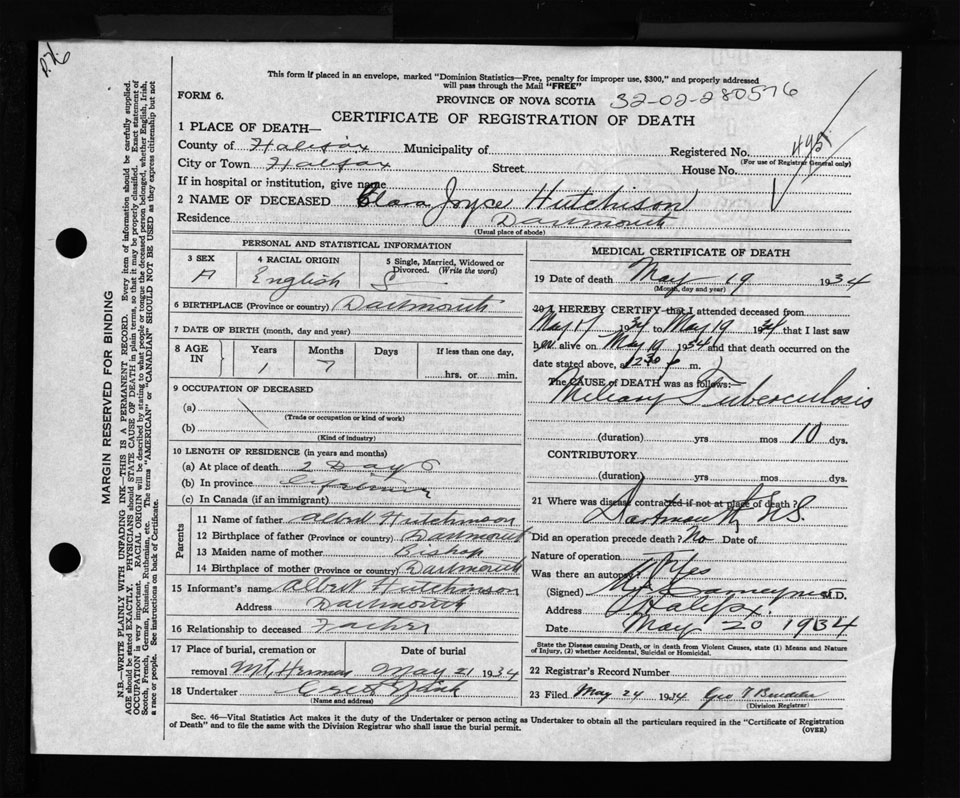 P.X.
This form if placed in an envelope, marked "Dominion Statistics—Free, penalty for improper use, $300," and properly addressed
will pass through the Mail "FREE"
FORM 6.
PROVINCE OF NOVA SCOTIA 32-02-280576
CERTIFICATE OF REGISTRATION OF DEATH
1 PLACE OF DEATH—
County of Halifax Municipality of Registered No. 495
(For use of Registrar General only)
City or Town Halifax Street House No.
If in hospital or institution, give name
2 NAME OF DECEASED Clara Joyce Hutchison
Residence Dartmouth
(Usual place of abode)
PERSONAL AND STATISTICAL INFORMATION
3 SEX
4 RACIAL ORIGIN
English
5 Single, Married, Widowed or
Divorced. (Write the word)
S
6 BIRTHPLACE (Province or country) Dartmouth
7 DATE OF BIRTH (month, day and year)
8 AGE
IN
Years
1
Months
7
Days
If less than one day,
hrs. or min.
9 OCCUPATION OF DECEASED
(a)
(Trade or occupation or kind of work)
(b)
(Kind of industry)
10 LENGTH OF RESIDENCE (in years and months)
(a) At place of death 2 Days
(b) In province Lifetime
(c) In Canada (if an immigrant)
Parents
11 Name of father Albert Hutchinson
12 Birthplace of father (Province or country) Dartmouth
13 Maiden name of mother Bishop
14 Birthplace of mother (Province or country) Dartmouth
15 Informant's name Albert Hutchinson
Address Dartmouth
16 Relationship to deceased Father
17 Place of burial, cremation or
removal Mt. Herman
Date of burial
May 21 1934
18 Undertaker
(Name and address)
MEDICAL CERTIFICATE OF DEATH
19 Date of death May 19 1934
(Month, day and year)
20 I HEREBY CERTIFY that I attended deceased from
May 17 1934 to May 19 1934 that I last saw
her alive on May 19 1934 and that death occurred on the
date stated above, at 1230 p m.
The CAUSE of DEATH was as follows:—
Miliary Tuberculosis
(duration) yrs mos 10 dys.
CONTRIBUTORY
(duration) yrs mos dys.
21 Where was disease contracted if not at place of death?
Dartmouth N.S.
Did an operation precede death? No Date of
Nature of operation
Was there an autopsy? Yes
(Signed) M.D.
Address Halifax
Date May 20 1934
State the Disease causing Death, or in death from Violent Causes, state (1) Means and Nature
of Injury, (2) whether Accidental, Suicidal or Homicidal.
22 Registrar's Record Number
23 Filed May 24 1934 Geo
(Division Registrar)
Sec. 46—Vital Statistics Act makes it the duty of the Undertaker or person acting as Undertaker to obtain all the particulars required in the "Certificate of Registration
of Death" and to file the same with the Division Registrar who shall issue the burial permit.
(OVER)
MARGIN RESERVED FOR BINDING
N.B.—WRITE PLAINLY WITH UNFADING INK—THIS IS A PERMANENT RECORD. Every item of information should be carefully supplied.
AGE should be stated EXACTLY. PHYSICIANS should STATE CAUSE OF DEATH in plain terms, so that it may be properly classified. Exact statement of
OCCUPATION is very important. RACIAL ORIGIN will be described by stating to what people or tongue the deceased person belonged, whether English, Irish,
Scotch, French, German, Russian, Ruthenian, etc. The terms "AMERICAN" or "CANADIAN" SHOULD NOT BE USED as they express citizenship but not
a race or people. See instructions on back of Certificate.